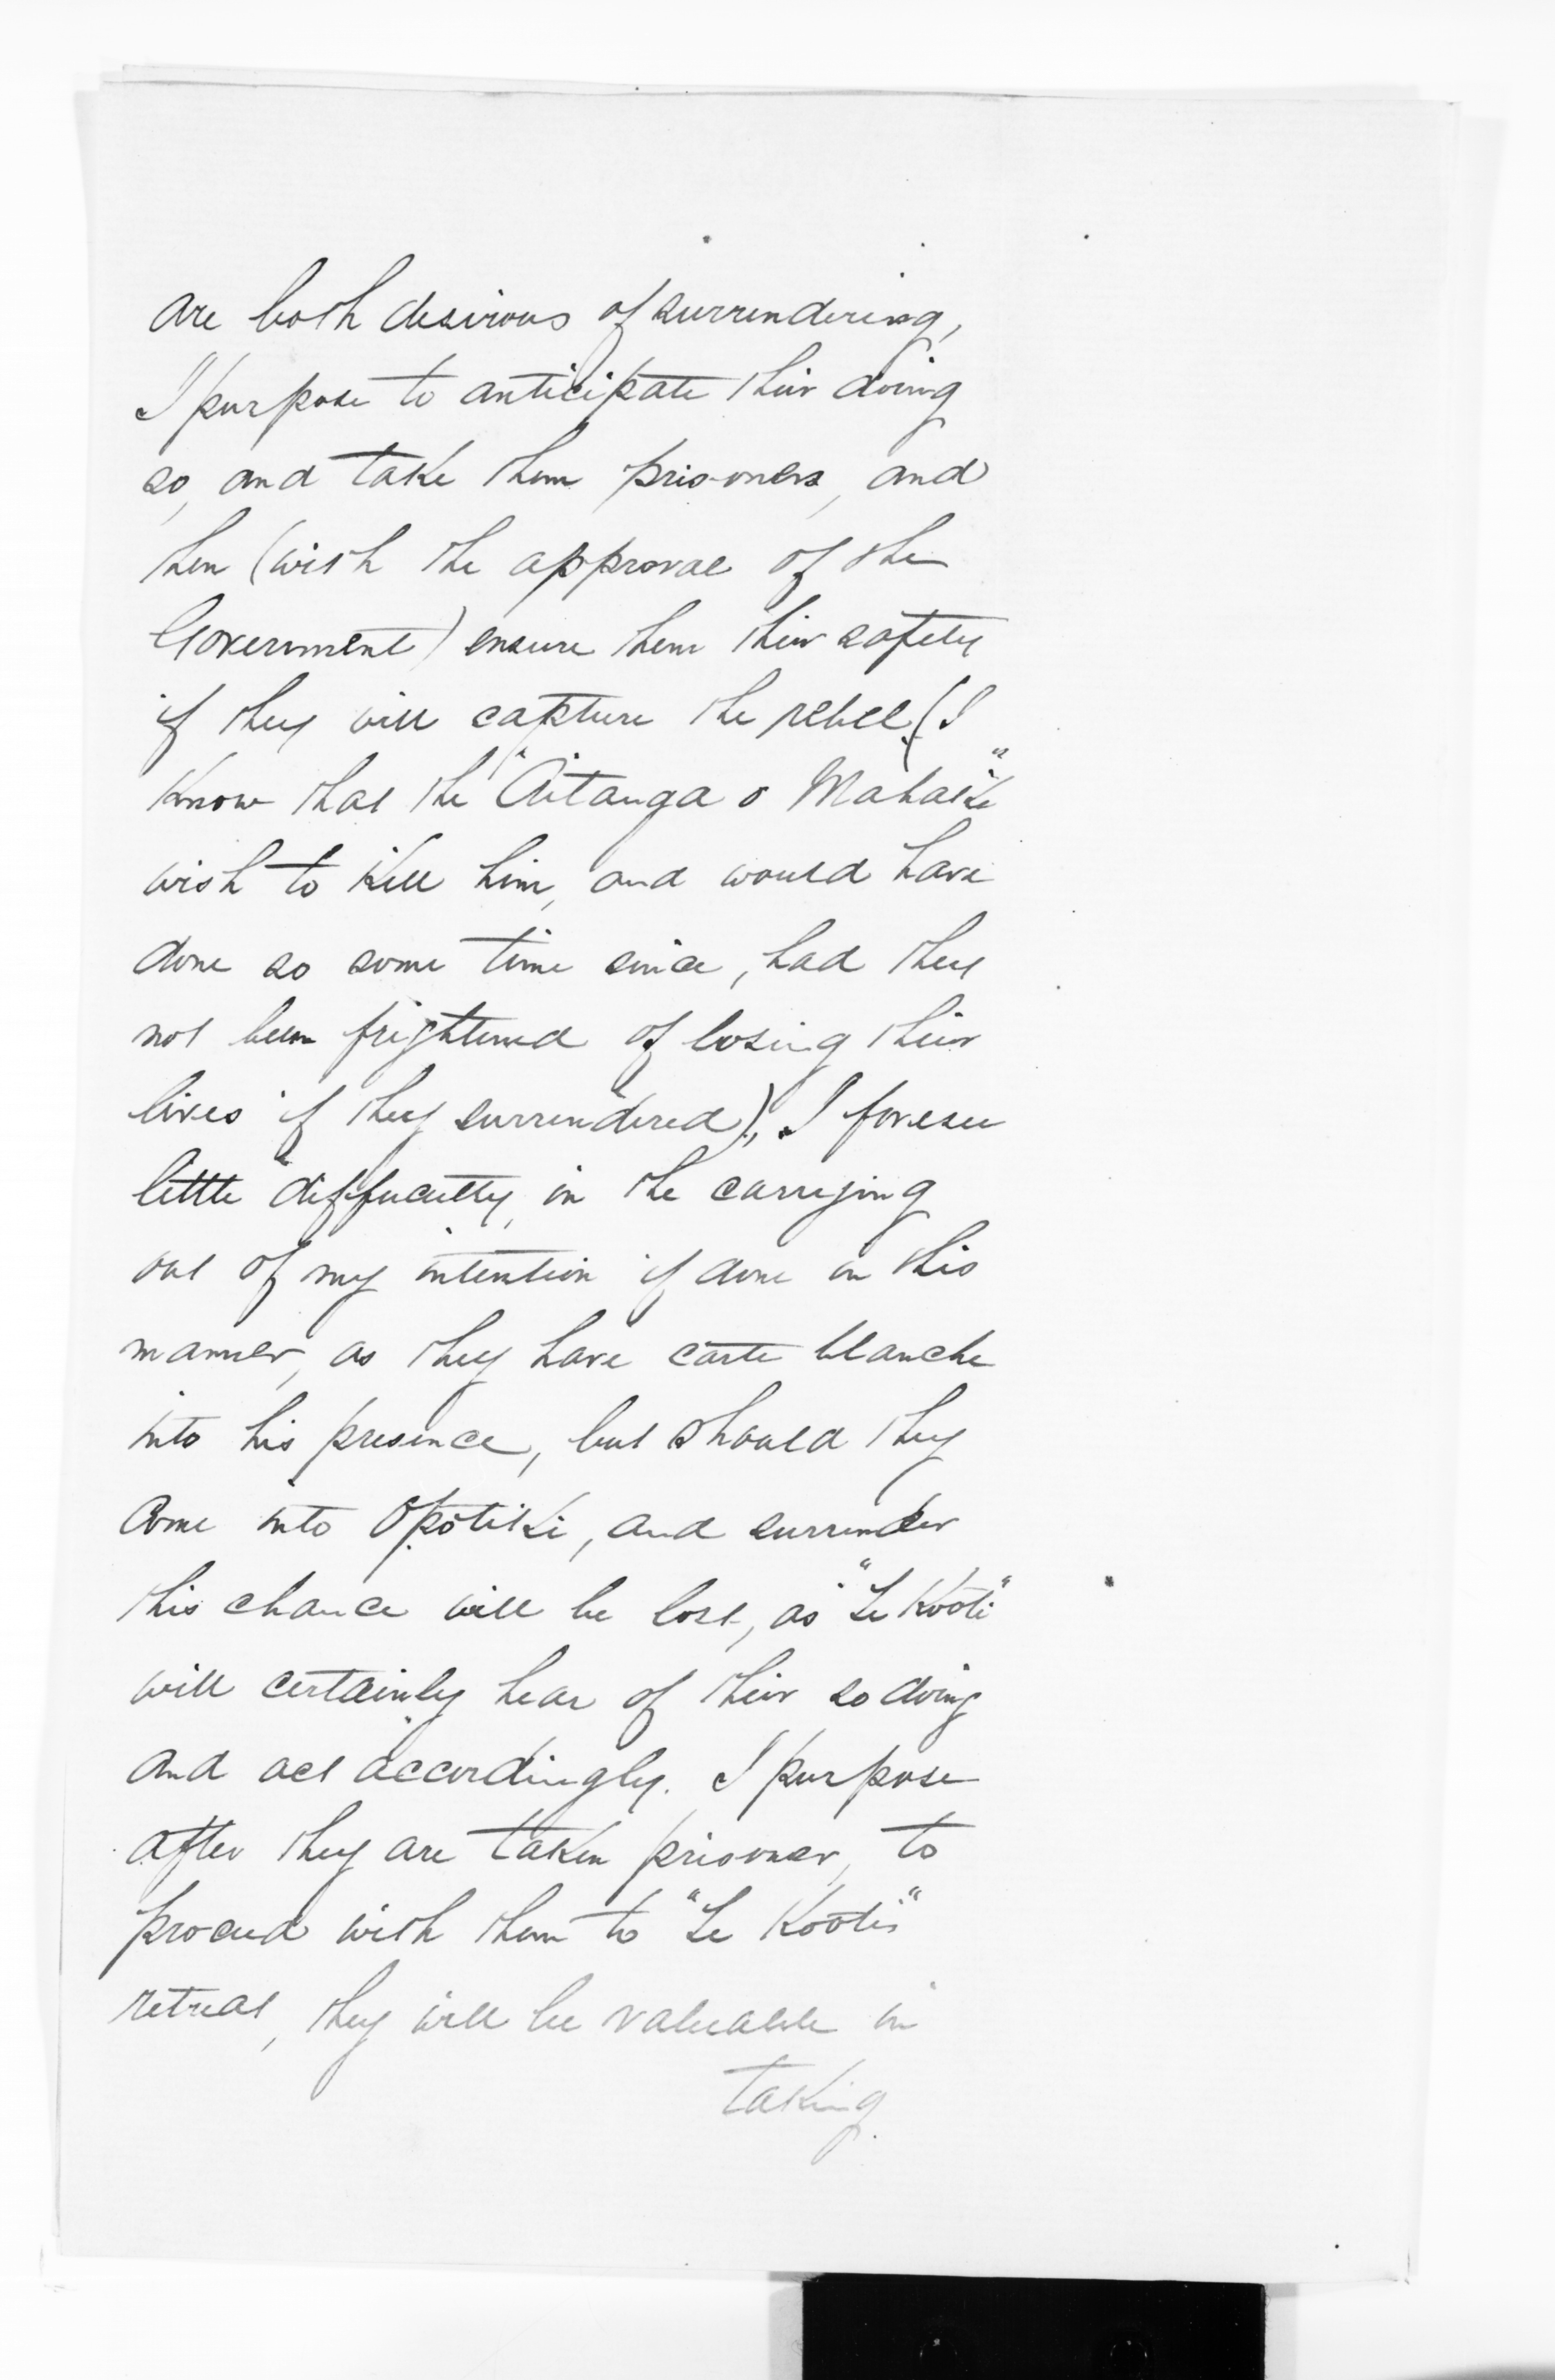 are both desirous of surrendering,
I purpose to anticipate their doing
so, and take them prisoners, and
then (with the approval of the
Government) ensure them their safety
if they will capture the rebel. (I
know that the "Aitanga o Mahaki"
wish to kill him, and would have
done so some time since, had they
not been frightened of losing their
lives if they surrendered), I foresee
little diffuculty, in the carrying
out of my intention if done in this
manner, as they have carte blanche
into his presence, but should they
come into Opotiki, and surrender
this chance will be lost, as "Te Kooti"
will certainly hear of their so doing
and act accordingly. I purpose
after they are taken prisoner, to
proceed with them to "Te Kooti's"
retreat, they will be valuable in
taking